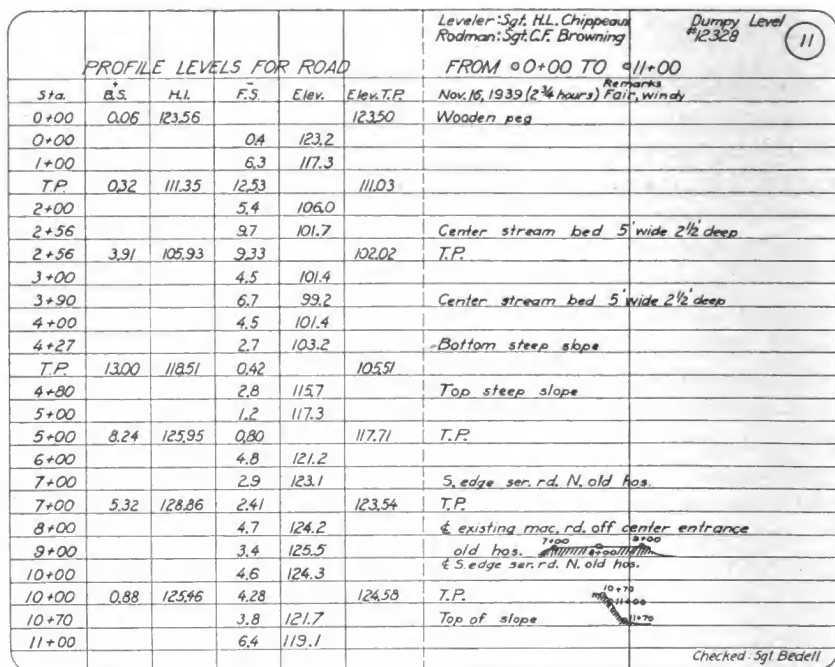 Leveler: Sgt. H.L. Chippeaux Dumpy Level
Rodman: Sgt. C.F. Browning #12328 11
PROFILE LEVELS FOR ROAD FROM 0+00 TO 11+00
Sta. + B.S. H.I. - F.S. Elev. Elev. T.P. Remarks
Nov. 16, 1939 (2 3/4 hours) Fair, windy
0+00 0.06 123.56 123.50 Wooden peg
0+00 0.4 123.2
1+00 6.3 117.3
T.P. 0.32 111.35 12.53 111.03
2+00 5.4 106.0
2+56 9.7 101.7 Center stream bed 5' wide 2 1/2' deep
2+56 3.91 105.93 9.33 102.02 T.P.
3+00 4.5 101.4
3+90 6.7 99.2 Center stream bed 5' wide 2 1/2' deep
4+00 4.5 101.4
4+27 2.7 103.2 Bottom steep slope
T.P. 13.00 118.51 0.42 105.51
4+80 2.8 115.7 Top steep slope
5+00 1.2 117.3
5+00 8.24 125.95 0.80 117.71 T.P.
6+00 4.8 121.2
7+00 2.9 123.1 S. edge ser. rd. N. old hos.
7+00 5.32 128.86 2.41 123.54 T.P.
8+00 4.7 124.2 ℄ existing mac. rd. off center entrance
9+00 3.4 125.5 old hos. 7+00 8+00
℄ S. edge ser. rd. N. old hos.
10+00 4.6 124.3
10+00 0.88 125.46 4.28 124.58 T.P. 10+70 11+00
10+70 3.8 121.7 Top of slope 11+70
11+00 6.4 119.1
Checked: Sgt Bedell